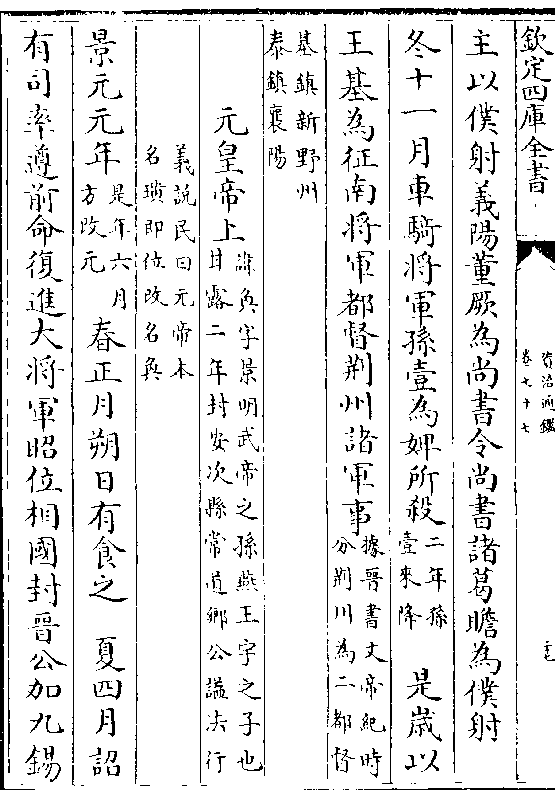 欽定四庫全書
資治通鑑
卷七十七
主以僕射義陽董厥為尚書令尚書諸葛瞻為僕射
冬十一月車騎將軍孫壹為婢所殺二年孫壹來降 是歲以
王基為征南將軍都督荆州諸軍事據晉書文帝紀時分荆州為二都督
基鎮新野州泰鎮襄陽
元皇帝上諱奐字景明武帝之孫燕王宇之子也甘露二年封安次縣常道鄉公謚法行
義說民曰元帝本名璜即位改名奐
景元元年是年六月方改元 春正月朔日有食之 夏四月詔
有司率遵前命復進大將軍昭位相國封晉公加九錫